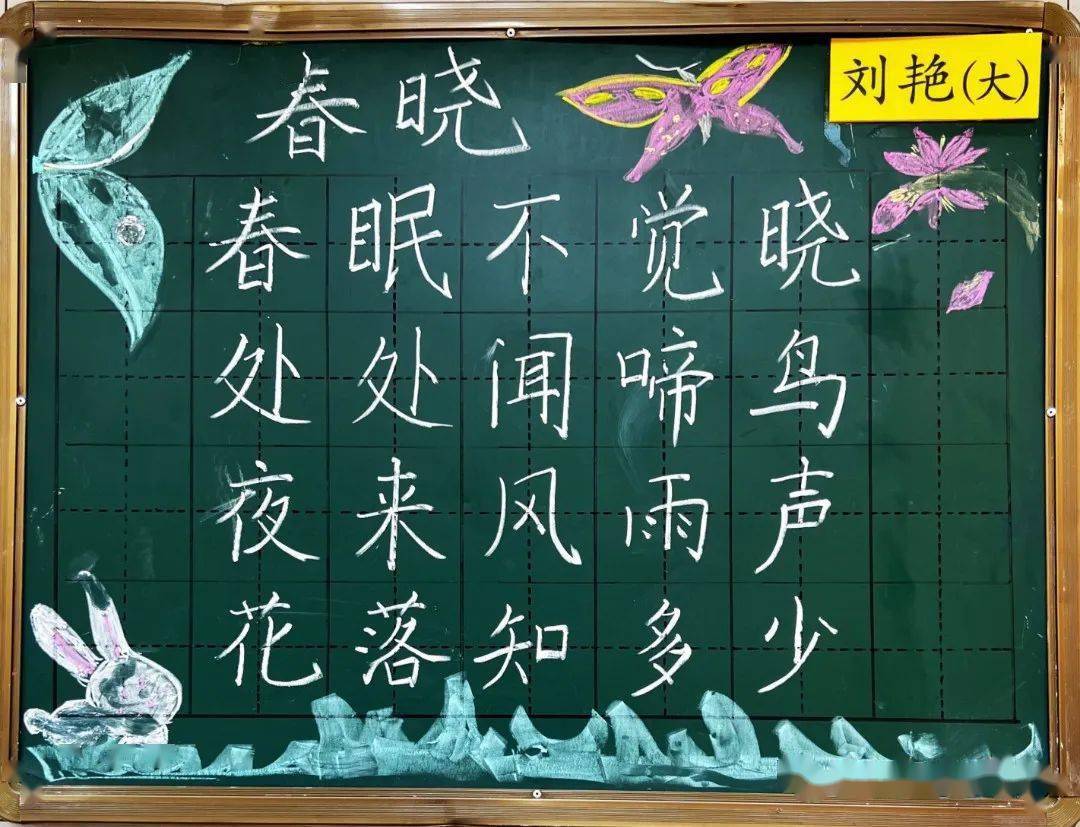 春晓
刘艳(大)
春眠不觉晓
处处闻啼鸟
夜来风雨声
花落知多少